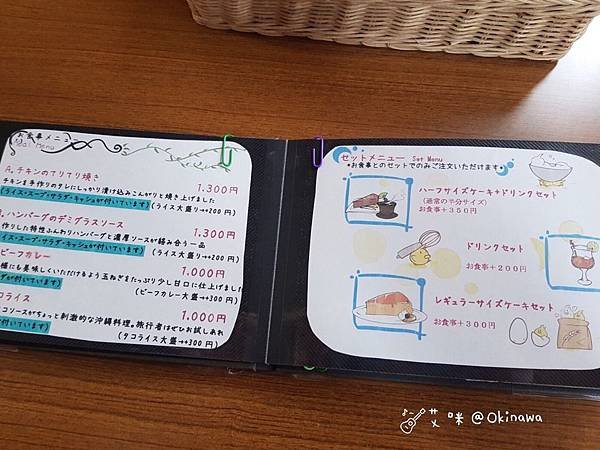 お食事メニュ
Meal Menu
A. チキンのてりてり焼き
1.300円
チキンを手作りのタレにしっかり漬け込みこんがりと焼き上げました
(ライス・スープ・サラダ・キッシュが付いています)
(ライス大盛り→+200円)
ハンバーグのデミグラスソース
1.300円
作りした特性ふんわりハンバーグと濃厚ソースが絡み合う一品
イス・スープ・サラダ・キッシュが付いています)
(ライス大盛り→+200円)
ビーフカレー
1.000円
様にも美味しくいただけるよう玉ねぎをたっぷり少し甘口に仕上げました
が付いています)
(ビーフカレー大盛→+300円)
コライス
1.000円
コソースがちょっと刺激的な沖縄料理。旅行者はぜひお試しあれ
付いています)
(タコライス大盛→+300円)
セットメニュー Set Menu
*お食事とのセットでのみご注文いただけます*
ハーフサイズケーキ+ドリンクセット
(通常の半分サイズ)
お食事+350円
ドリンクセット
お食事+200円
レギュラーサイズケーキセット
お食事+300円
艾咪 @Okinawa